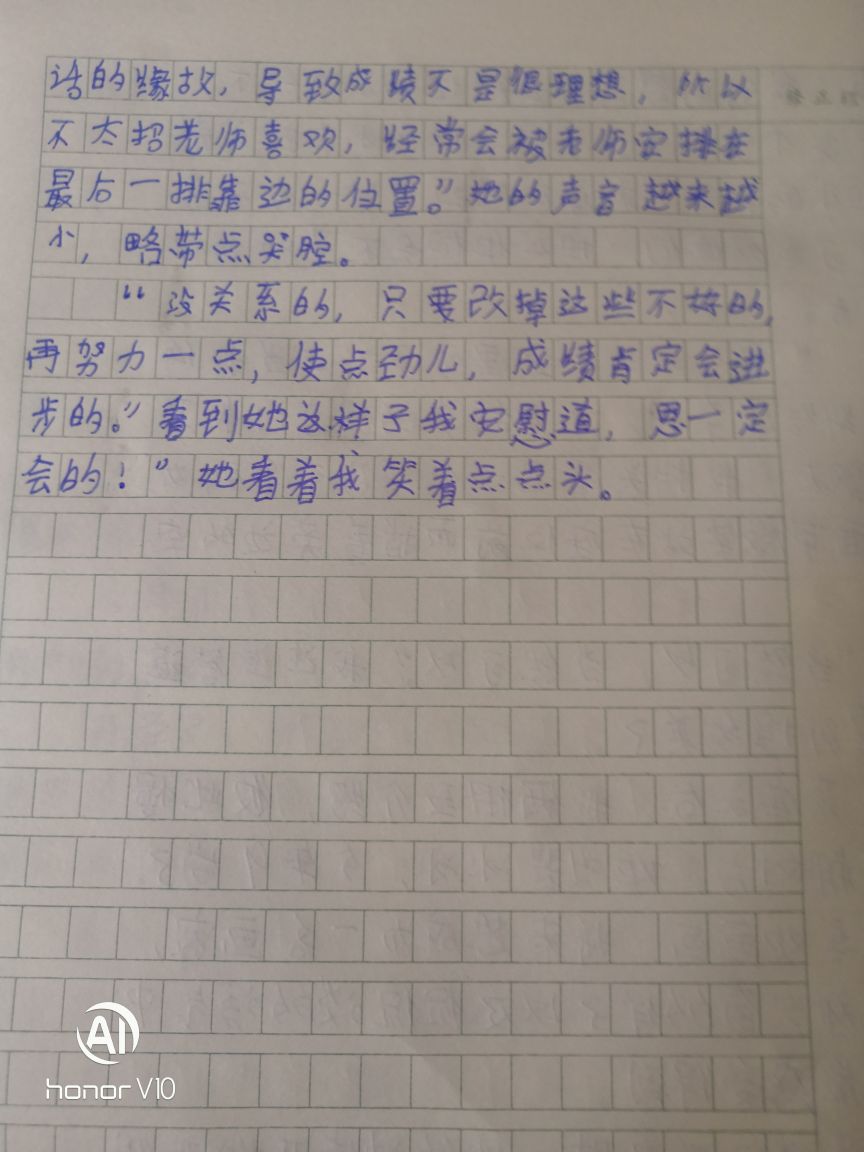 话的缘故，导致成绩不是很理想，所以
不太招老师喜欢，经常会被老师安排在
最后一排靠边的位置。”她的声音越来越
小，略带点哭腔。
“没关系的，只要改掉这些不好的，
再努力一点，使点劲儿，成绩肯定会进
步的。”看到她这样子我安慰道，恩一定
会的！”她看着我笑着点点头。
AI
honor V10